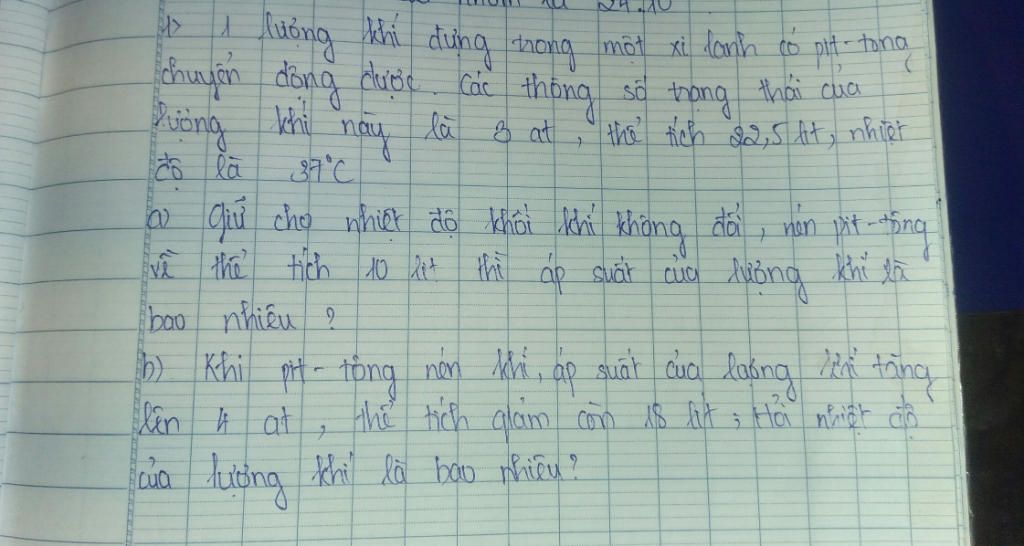 24.10
1> 1 lượng khí đựng trong một xi lanh có pit-tong
chuyển động được. Các thông số trạng thái của
lượng khí này là 3 at, thể tích 22,5 lít, nhiệt
độ là 37°C
a) Giữ cho nhiệt độ khối khí không đổi, nén pit-tông
về thể tích 10 lít thì áp suất của lượng khí là
bao nhiêu ?
b) Khi pit-tông nén khí, áp suất của lượng khí tăng
lên 4 at, thể tích giảm còn 18 lít; Hỏi nhiệt độ
của lượng khí là bao nhiêu?